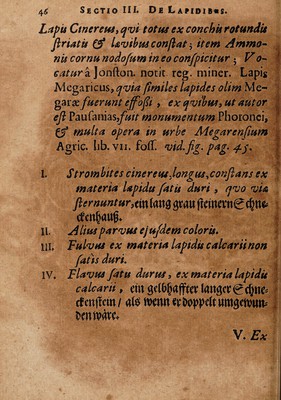 46 SECTIO III. DE LAPIDIBUS.
Lapis Cinereus, qui totus ex conchis rotundis
striatis & lævibus constat; item Ammo-
nis cornu nodosum in eo conspicitur; Vo-
catur à Jonston. notit reg. miner. Lapis
Megaricus, quia similes lapides olim Me-
garæ fuerunt effossi, ex quibus, ut autor
est Pausanias, fuit monumentum Phoronei,
& multa opera in urbe Megarensium
Agric. lib. VII. foss. vid. fig. pag. 45.
I. Strombites cinereus, longus, constans ex
materia lapidis satis duri, quo viæ
sternuntur, ein lang grau steinern Schne-
ckenhauß.
II. Alius parvus ejusdem coloris.
III. Fulvus ex materia lapidis calcarii non
satis duri.
IV. Flavus satis durus, ex materia lapidis
calcarii, ein gelbhaffter langer Schne-
ckenstein / als wenn er doppelt umgewun-
den wäre.
V. Ex